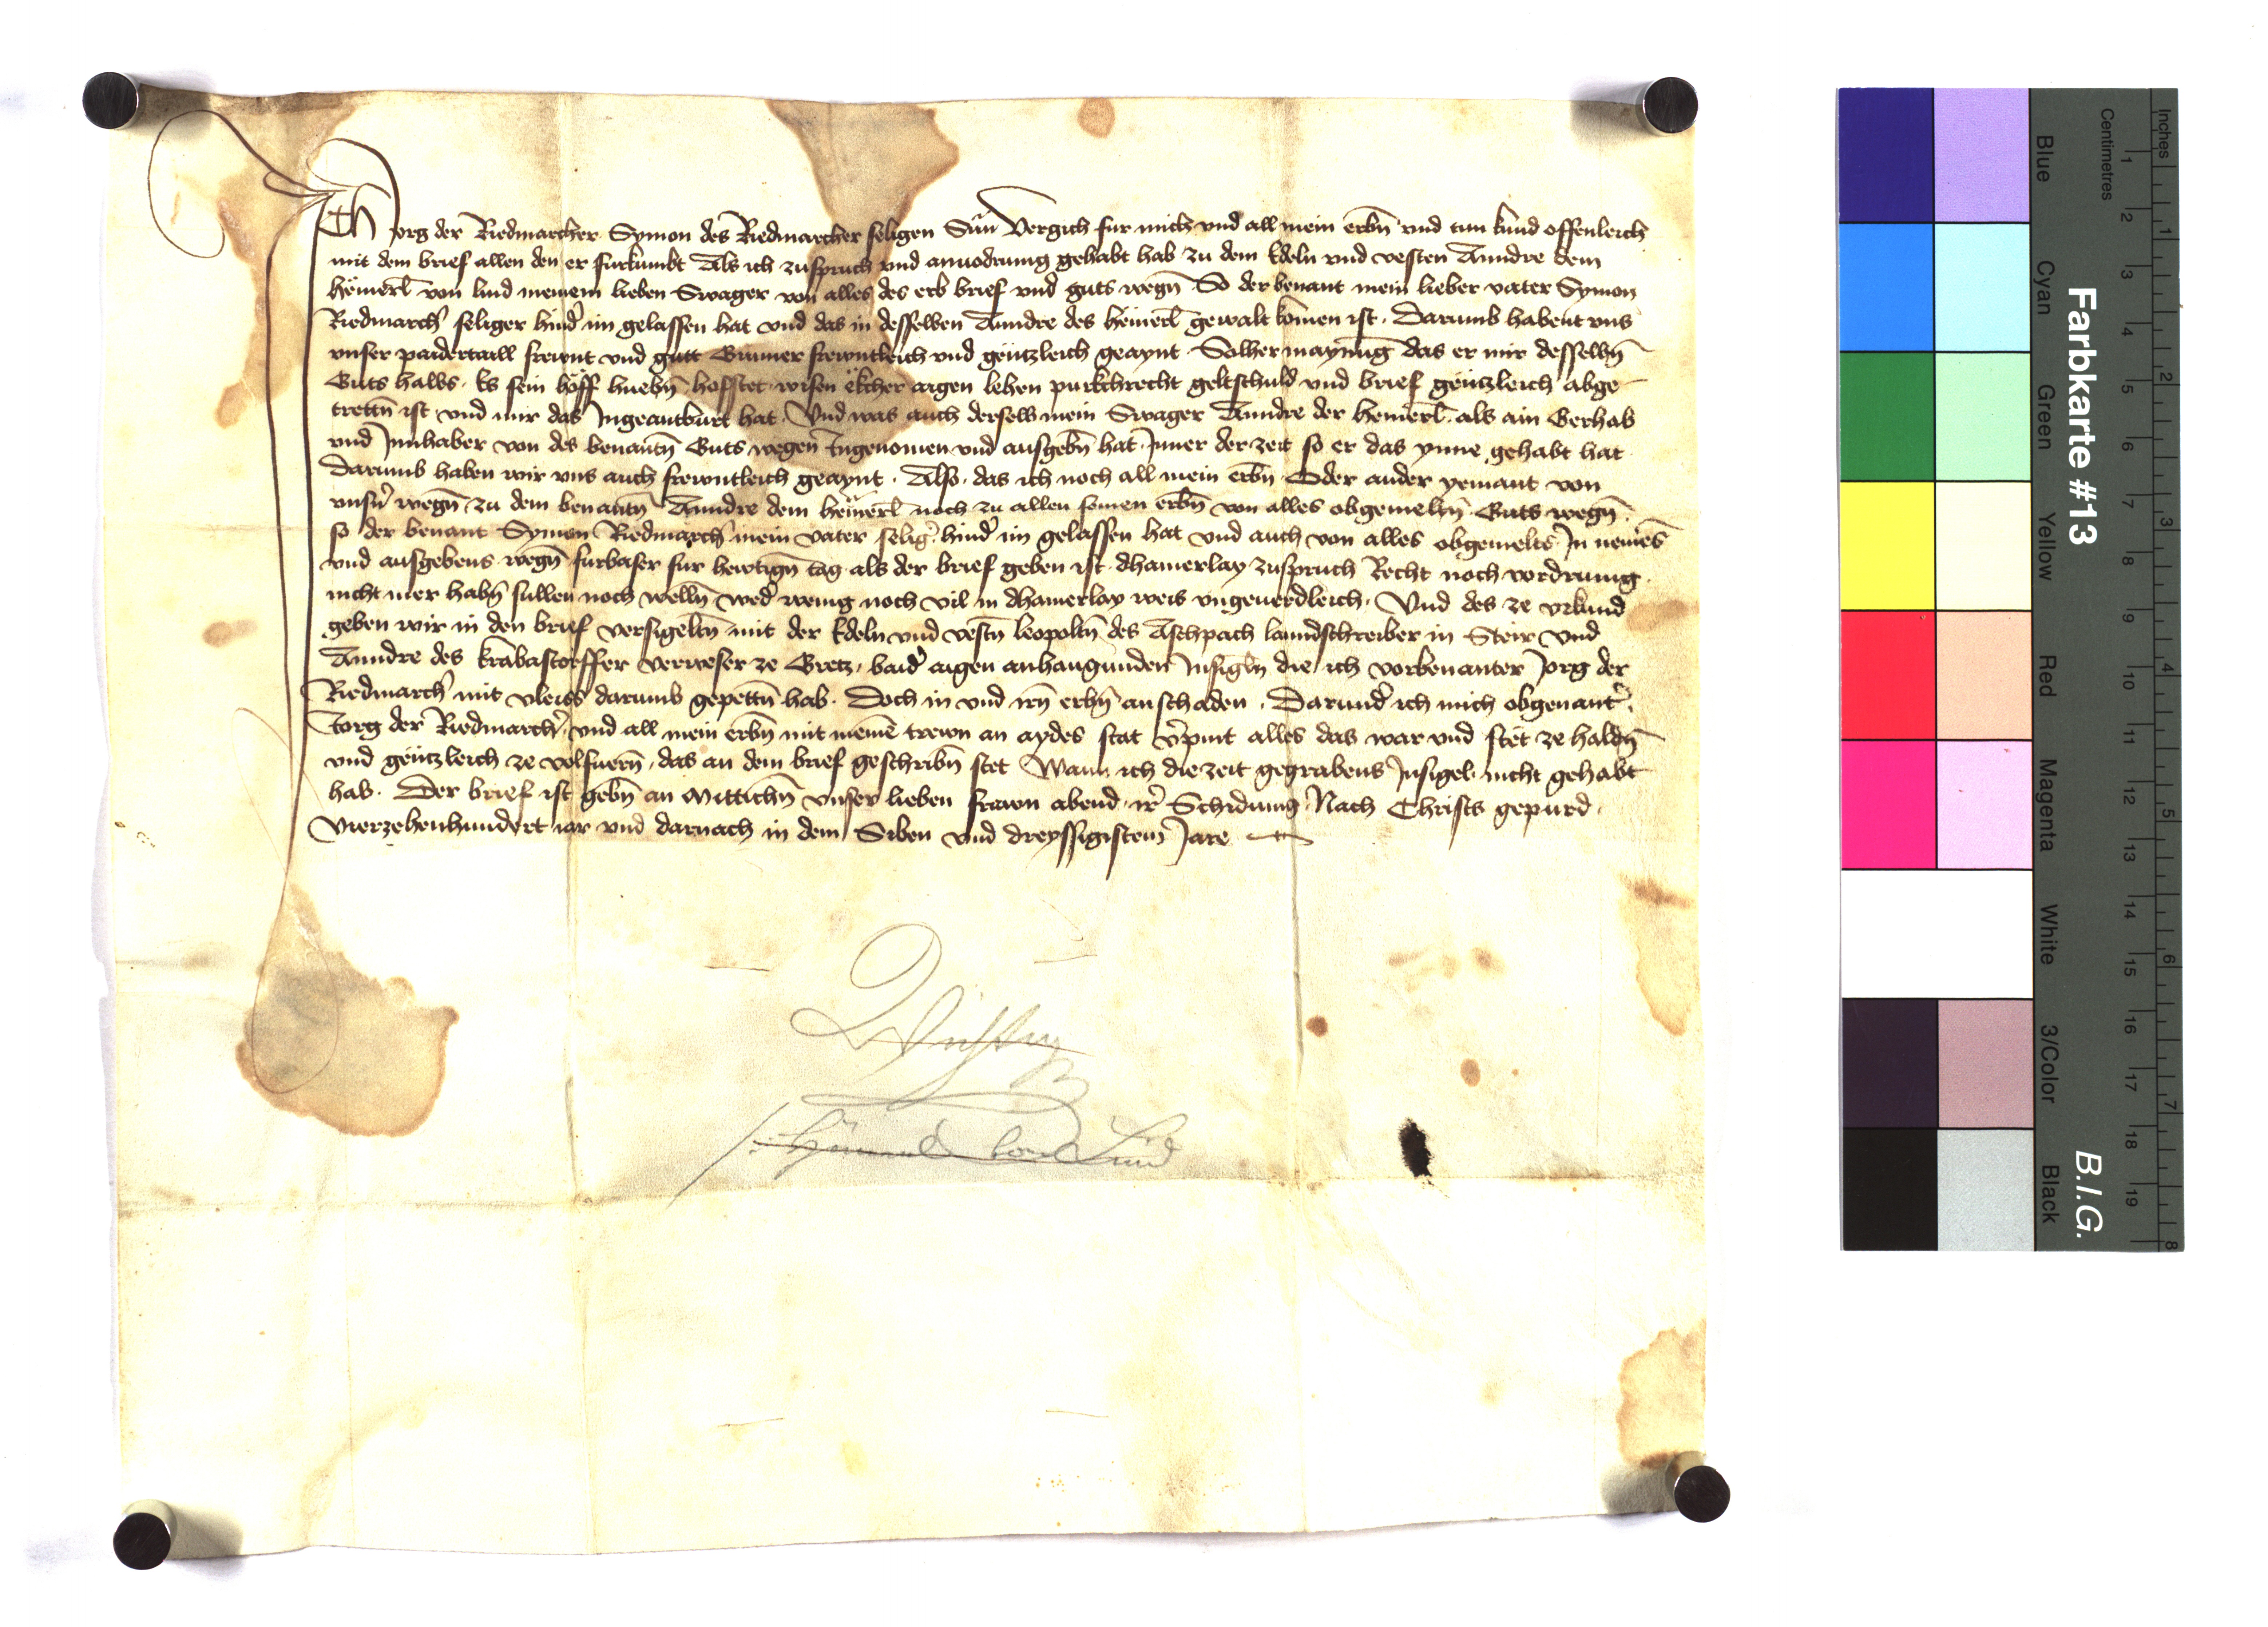 Ich Jorg der Riedmarcher Symon des Riedmarcher seligen Sun Vergich fur mich vnd all mein erbn̄ vnd tun kund offenleich
mit dem brief allen den er furkumbt Als ich zuspruch vnd anuodrung gehabt hab zu dem Edeln vnd vesten Anndre dem
hëmerl̄ von lind meinem lieben Swager von alles des erb brief vnd guts wegn̄ So der benant mein lieber vater Symon
Riedmarch̾ seliger hind̾ im gelassen hat vnd das in desselben Anndre des hëmerl̄ gewalt komen ist. Darumb habent vns
vnser paidertaill frewnt vnd gutt Gunner frewntleich vnd gëntzleich geaynt. Solher maynung das er mir desselbn̄
Guts halbs. Es sein höff huebn̄ hofstet wisen ëkcher aigen lehen purkchrecht geltschuld vnd brief gëntzleich abge
trettn̄ ist vnd mir das Ingeantburt hat. Vnd was auch derselb mein Swager Anndre der hemerl̄ als ain Gerhab
vnd Innhaber von des benantn̄ Guts wegen Ingenomen vnd ausgebn̄ hat. Inner der zeit so er das ynne gehabt hat
Darumb haben wir vns auch frewntleich geaynt. Also. das ich noch all mein erbn̄ Oder ander yemant von
vnsn̾ wegn̄ zu dem benantn̄ Anndre dem hëmerl̄ noch zu allen seinen erbn̄ von alles obgemeltn̄ Guts wegn̄
so der benant Symon Riedmarch̾ mein vater selig̾ hind̾ im gelassen hat vnd auch von alles obgemelts In nemēs
vnd ausgebens wegn̄ furbaser fur hewtign̄ tag als der brief geben ist. dhainerlay zuspruch Recht noch vordrunng
nicht mer habn̄ sullen noch welln̄ wed̾ wenig noch vil in dhainerlay weis vngeuerdleich. Vnd des ze vrkund
geben wir in den brief versigeltn̄ mit der Edeln vnd vestn̄ leopoltn̄ des Aschpach lanndschreiber in Steir vnd
Anndre des krabastorffer verweser ze Gretz. baid̾ aigen anhangunden Insigln̄ die ich vorbenanter Jorg der
Riedmarch̾ mit vleiss darumb gepettn̄ hab. Doch in vnd irn̄ erbn̄ an schaden. Darund̾ ich mich obgenant̾
Jorg der Riedmarch̾ vnd all mein erbn̄ mit meinē trewn an aydes stat v̾pint alles das war vnd stët ze haldn̄
vnd gëntzleich ze volfuern̄. das an dem brief geschribn̄ stet Wann ich die zeit gegrabens Insigel nicht gehabt
hab. Der brief ist gebn̄ an Mittichn̄ vnser lieben frawn abend ir̾ Schidung Nach Christs gepurd.
Vierzehenhundert iar vnd darnach in dem Siben vnd dreyssigistem Jare
Farbkarte #13
B.I.G.
Inches
Centimetres
Blue
Cyan
Green
Yellow
Red
Magenta
White
3/Color
Black
1 2 3 4 5 6 7 8 9 10 11 12 13 14 15 16 17 18 19
1 2 3 4 5 6 7 8